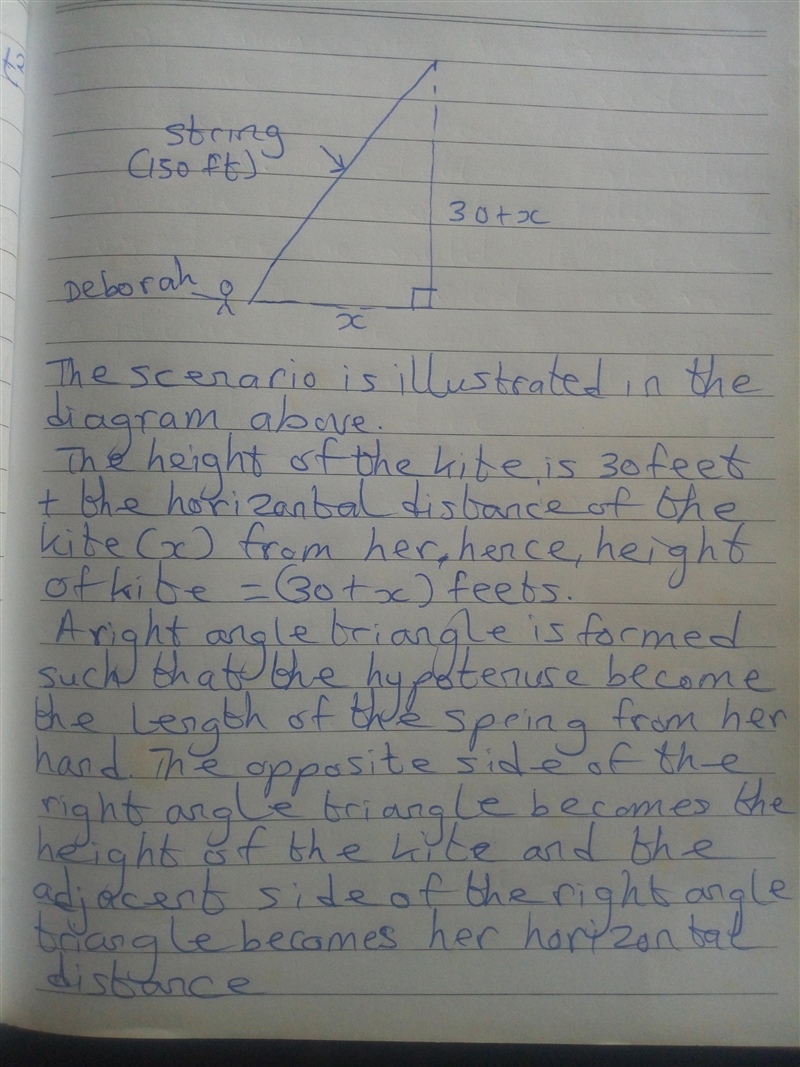 String
(150 ft)
30+x
Deborah
x
The scenario is illustrated in the
diagram above.
The height of the kite is 30 feet
+ the horizantal distance of the
kite (x) from her, hence, height
of kite = (30+x) feets.
A right angle triangle is formed
such that the hypotenuse become
the length of the spring from her
hand. The opposite side of the
right angle triangle becomes the
height of the kite and the
adjacent side of the right angle
triangle becomes her horizontal
distance